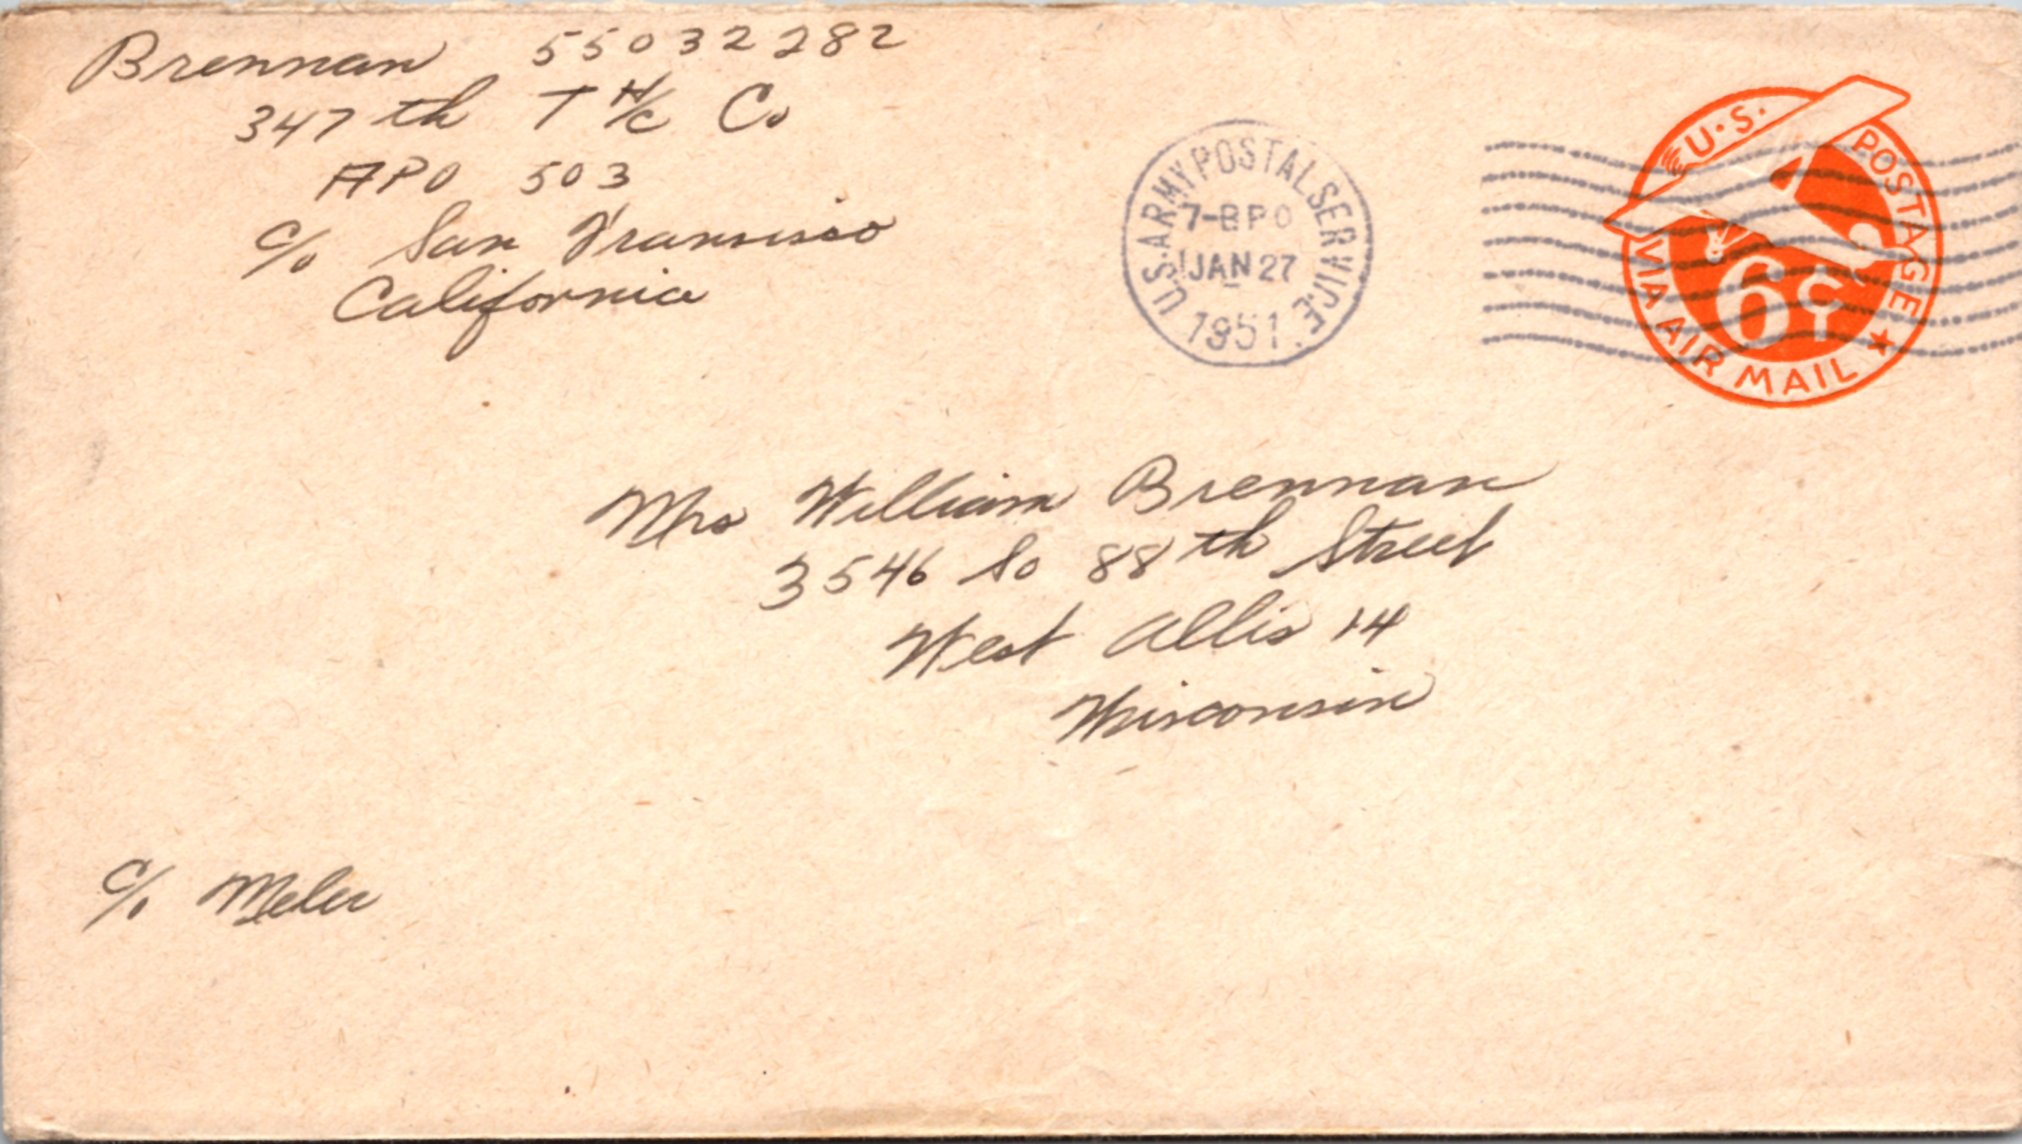 Brennan 55032282
347th T H/c Co
APO 503
c/o San Fransisco
California
U.S. ARMY POSTAL SERVICE
7-BPO
JAN 27
1951
U.S. POSTAGE
6¢
VIA AIR MAIL
Mrs William Brennan
3546 So 88th Street
West Allis 14
Wisconsin
c/o Meler